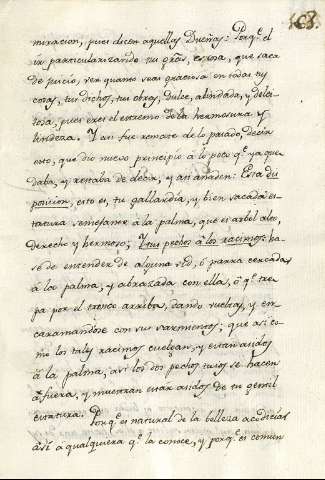 168.
miracion, pues dicen aquellas Dueñas: Porq.e el
ir particularizando tus grãs, esposa, que saca
de juicio, ver quanto seas graciosa en todas tus
cosas, tus dichos, tus obras, dulce, alindada, y dele
tosa, pues eres el estremo de la hermosura, y
lindeza. Y asi fue remate de lo pasado, decir
esto, que dio nuevo principio à lo poco q.e ya que
daba, y restaba de decir, y asi añaden: Esta dis
posicion, esto es, tu gallardía, y bien sacada es
tatura semejante à la palma, que es arbol alto,
derecho y hermoso; Y tus pechos à los racimos: ha
se de entender de alguna vid, ò parra cercadas
à la palma, y abrazada con ella, ò q.e tre
pa por el tronco arriba, dando vueltas, y en
caramandose con sus sarmientos; que asi co
mo los tales racimos cuelgan, y estan asidos
à la palma, asi los dos pechos tuyos se hacen
à fuera, y muestran estar asidos de tu gentil
estatura. Porq.e es natural de la belleza acodiciar
à sí a qualquiera q.e la conoce, y porq.e es comun